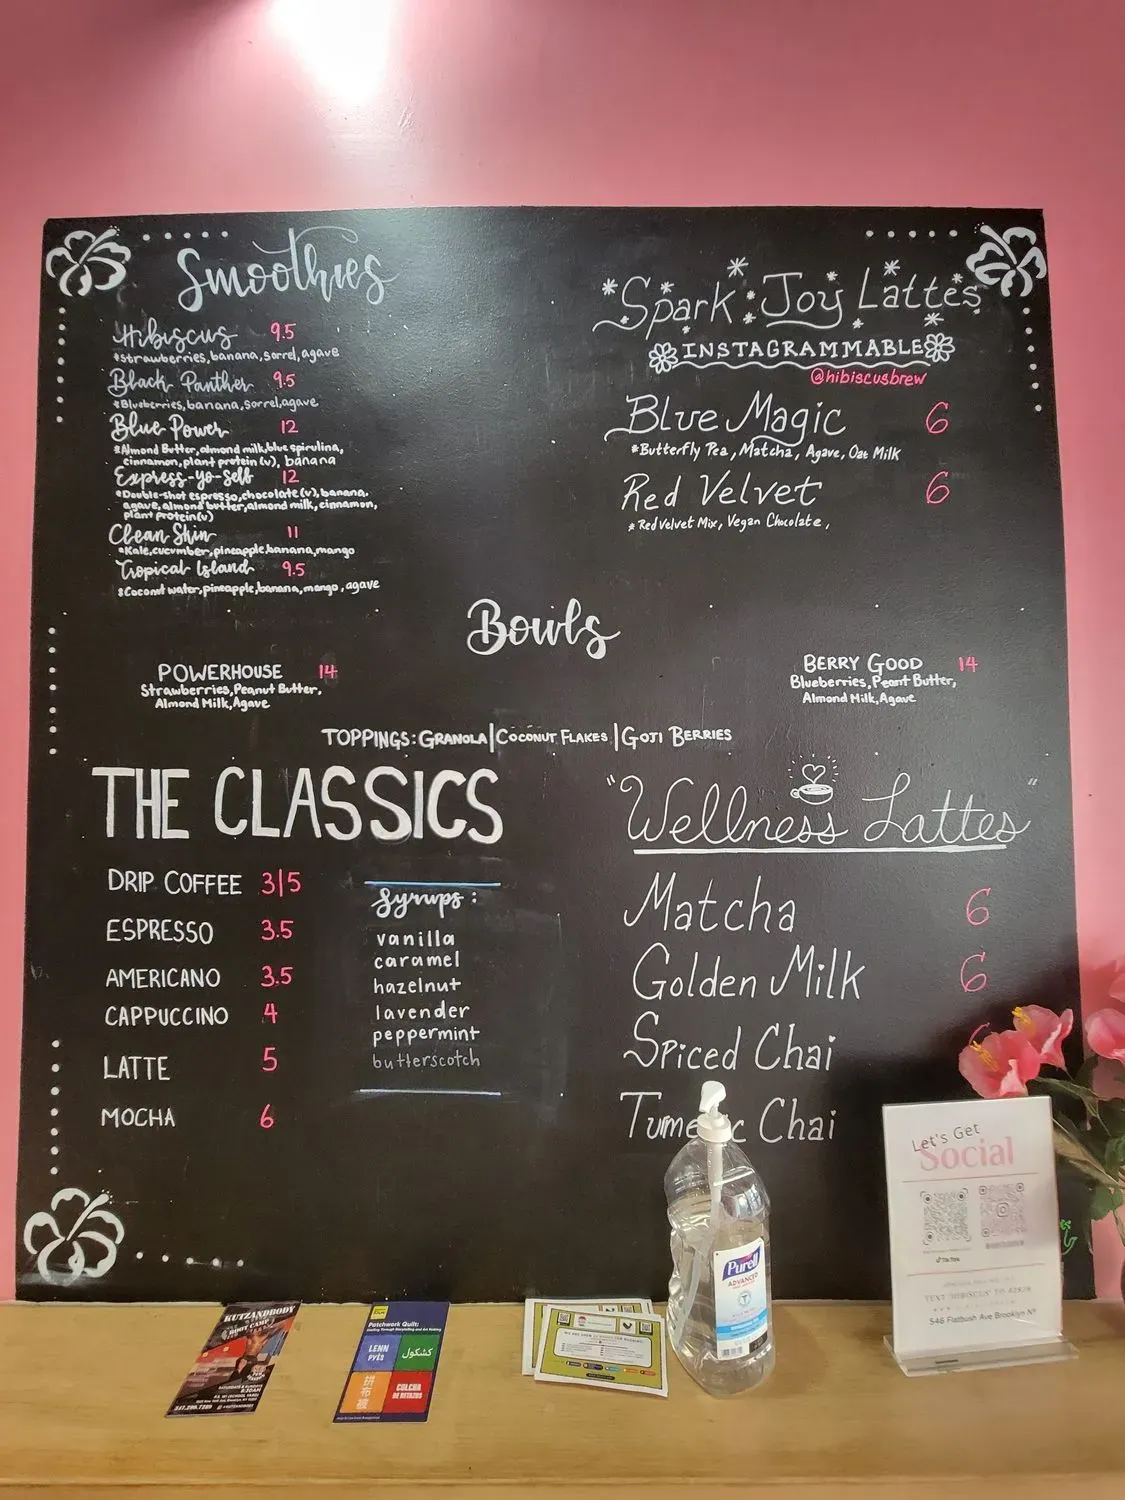 Smoothies
Hibiscus 9.5
*strawberries, banana, sorrel, agave
Black Panther 9.5
*Blueberries, banana, sorrel, agave
Blue Power 12
*Almond Butter, almond milk, blue spirulina,
cinnamon, plant protein (v), banana
Express-yo-self 12
*Double-shot espresso, chocolate (v), banana,
agave, almond butter, almond milk, cinnamon,
plant protein (v)
Clean Skin 11
*Kale, cucumber, pineapple, banana, mango
Tropical Island 9.5
*Coconut water, pineapple, banana, mango, agave
Spark Joy Lattes
INSTAGRAMMABLE
@hibiscusbrew
Blue Magic 6
*Butterfly Pea, Matcha, Agave, Oat Milk
Red Velvet 6
*Red Velvet Mix, Vegan Chocolate,
Bowls
POWERHOUSE 14
Strawberries, Peanut Butter,
Almond Milk, Agave
BERRY GOOD 14
Blueberries, Peant Butter,
Almond Milk, Agave
TOPPINGS: GRANOLA | COCONUT FLAKES | GOJI BERRIES
THE CLASSICS
DRIP COFFEE 3|5
ESPRESSO 3.5
AMERICANO 3.5
CAPPUCCINO 4
LATTE 5
MOCHA 6
Syrups:
vanilla
caramel
hazelnut
lavender
peppermint
butterscotch
"Wellness Lattes"
Matcha 6
Golden Milk 6
Spiced Chai
Chai
KUTZANDBODY
BOOT CAMP
Patchwork Quilt:
LENN
PYÈS
کشکول
拼
布
被
COLCHA
DE RETAZOS
Purell
ADVANCED
Let's Get
Social
TikTok
TEXT 'HIBISCUS' TO
546 Flatbush Ave Brooklyn NY